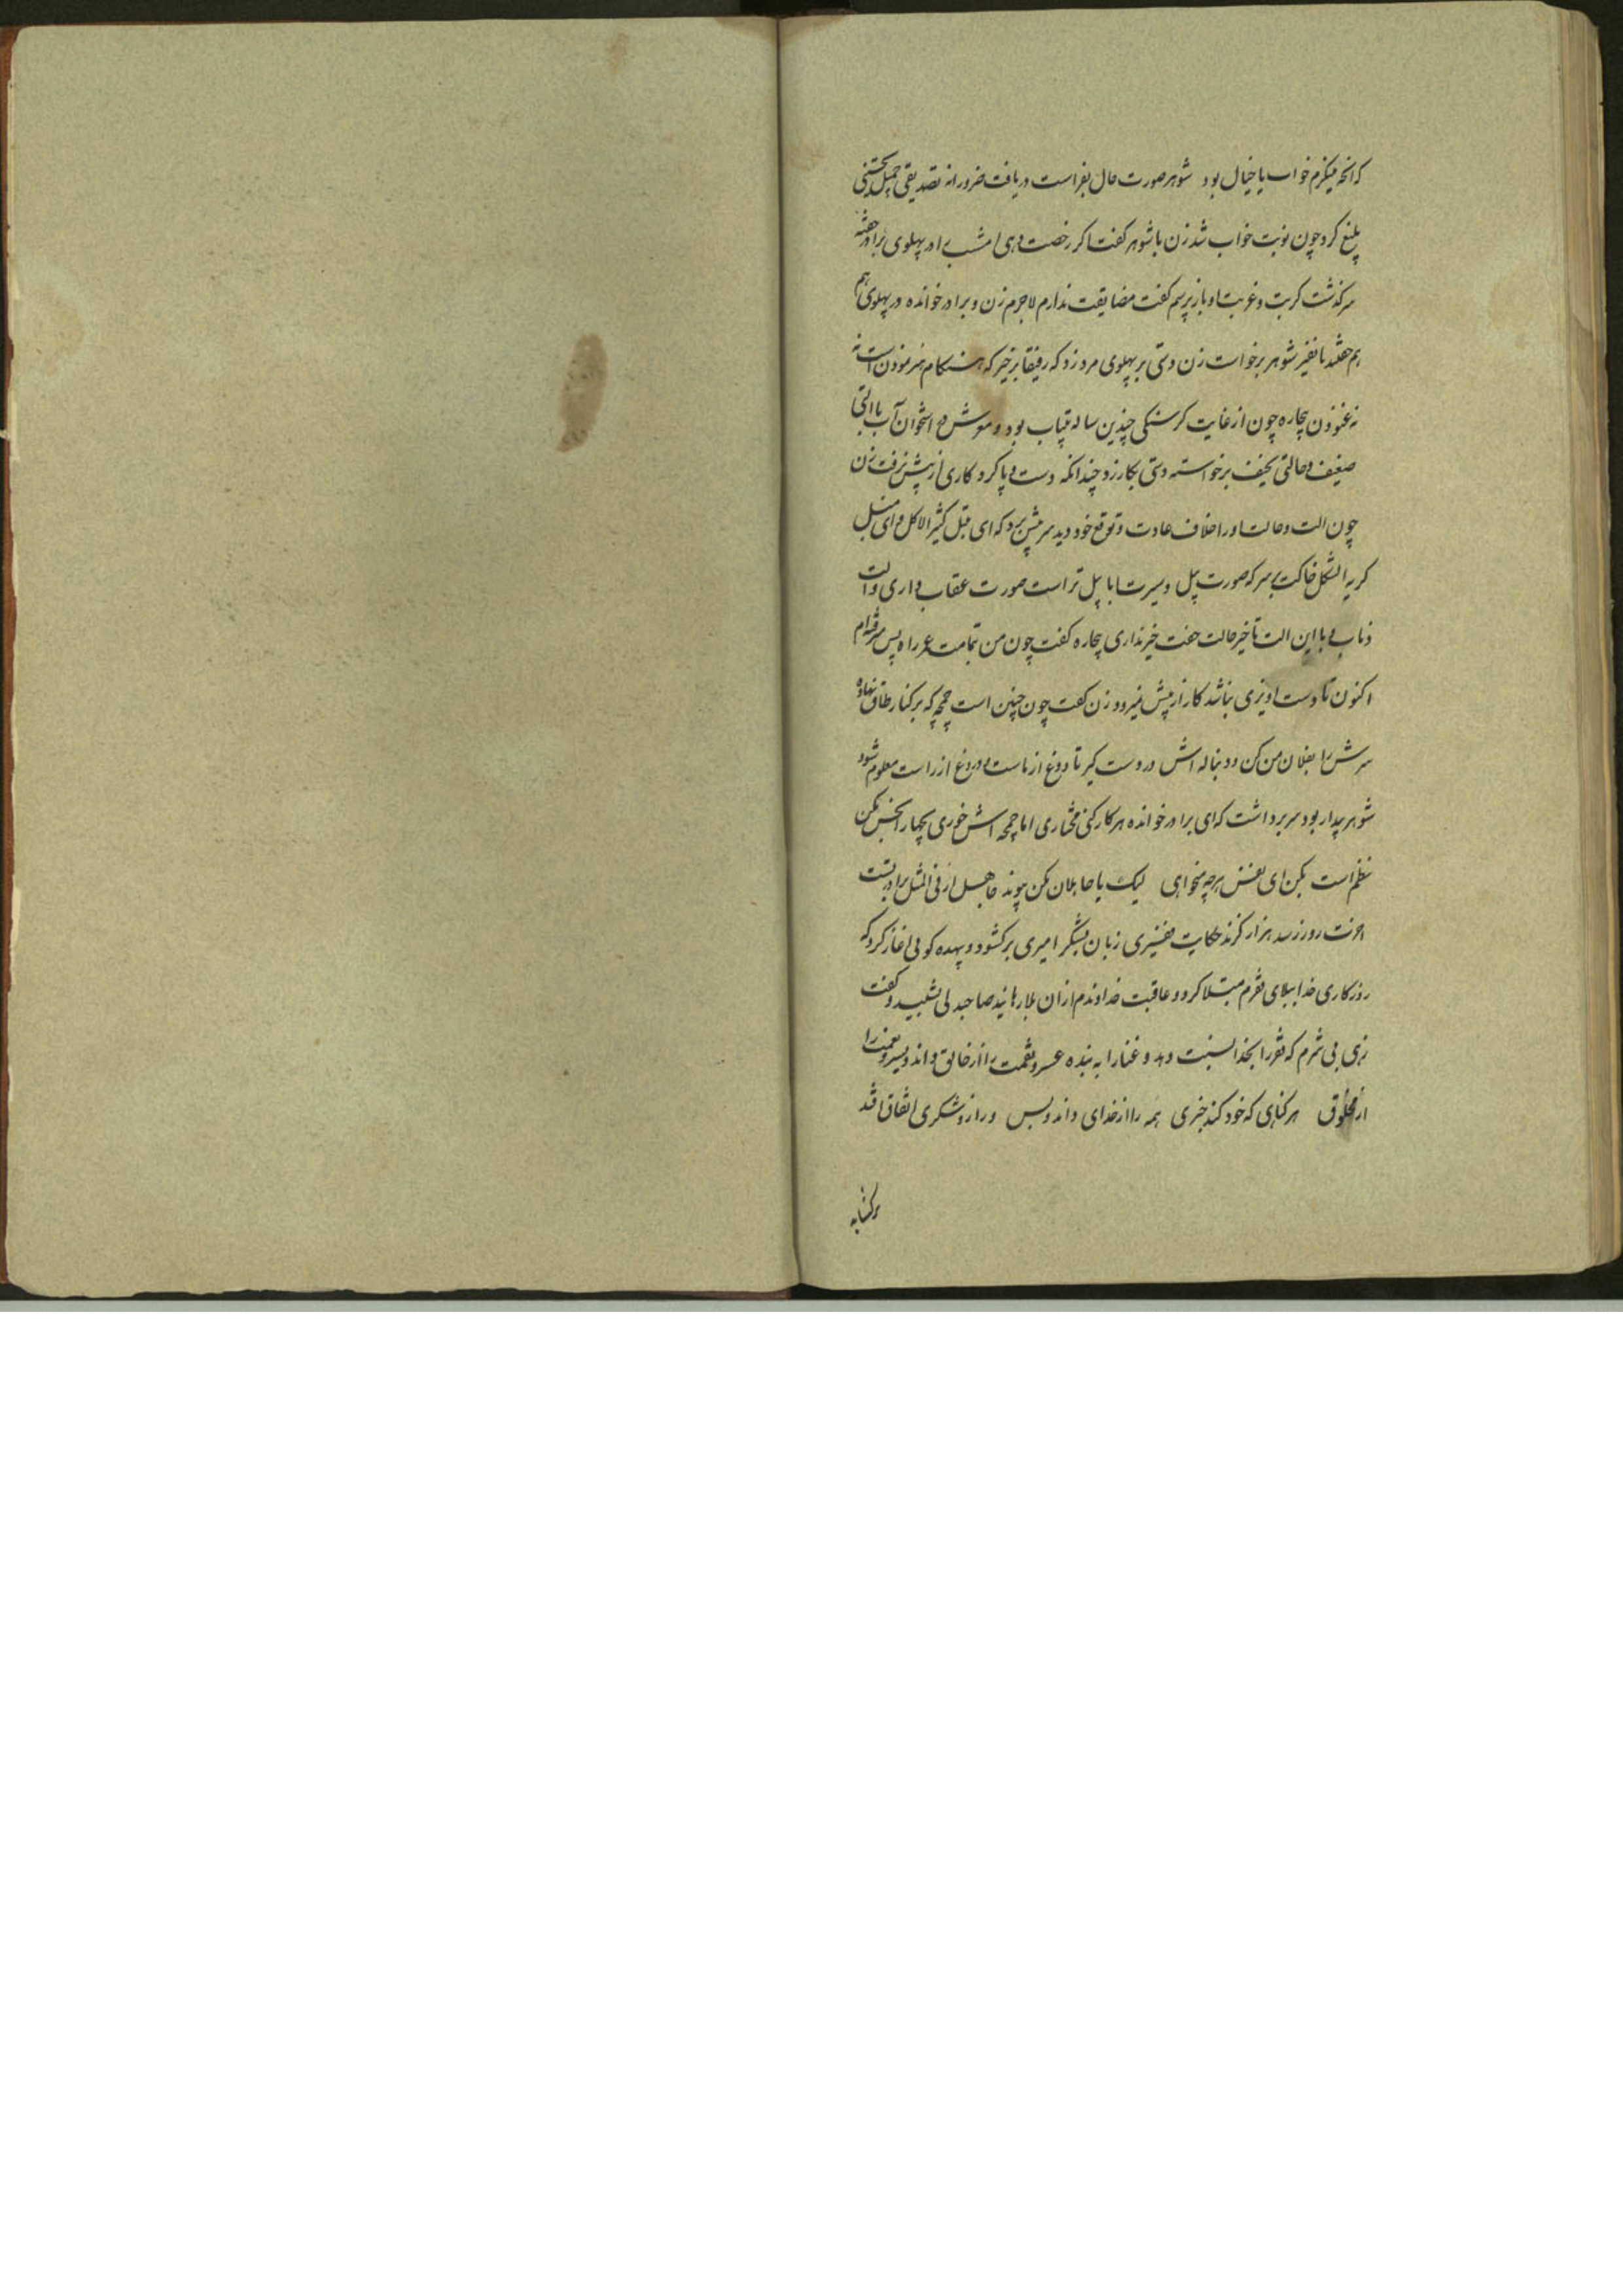 که آنچه میکزم خواب یا خیال بود شوهر صورت حال بفراست دریافت ضرورانه تصدیقی جمیل تحسینی
بلیغ کرد چون نوبت خواب شد زن با شوهر کفت اکر رخصت دهی امشب در پهلوی برادر خفته
سرکذشت کربت و غربت او باز پرسم کفت مضایقت ندارم لاجرم زن و برادر خوانده در پهلوی هم
هم خفتند تا نفیر شوهر برخواست زن دستی بر پهلوی مرد زد که رفیقا برخیز که هنکام هنر نمودن است نه
نه غنودن بیچاره چون از غایت کرسنکی چندین ساله بیتاب بود و موش در استخوان آب با التی
ضعیف و حالتی نحیف برخواسته دستی بکار زد چندانکه دست و پا کرد کاری از پیش نرفت زن
چون الت و حالت او را خلاف عادت و توقع خود دید سر پیش برد که ای کثیر الاکل و ای
کریه الشکل خاکت بر سر که صورت پیل و سیرت ابابیل تراست صورت عقاب داری و الت
ذباب و با این الت تا خیر حالت جفت خبر نداری بیچاره کفت چون من تمامت عمر راه پس میرفته‌ام
اکنون تا دست اویزی نباشد کار از پیش نمیرود زن کفت چون چنین است چمچه که بر کنار طاق نهاده
سرش را بفلان من کن و دنباله اش در دست کیر تا دوغ از ماست و دروغ از راست معلوم شود
شوهر بیدار بود سر برداشت که ای برادر خوانده هر کار کنی مختاری اما چمچه اش خوری بیچهار انجس مکن
نظم است بکن ای نفس هرچه میخواهی لیک با جاهلان مکن پیوند جاهل ار فی المثل برادر تست
اخرت روز رسد هزار کزند حکایت فقیری زبان بشکر امیری برکشود و بیهده کوئی اغاز کرد که
روزکاری خدا ببلای فقرم مبتلا کرد و عاقبت خداوندم از ان بلا رهانید صاحبدلی بشنید و کفت
زهی بی شرم که فقر را بخدا نسبت دهد و غنا را به بنده عسر و نقمت را از خالق داند و یسر و نعمت را
از مخلوق هر کناهی که خود کند جبری همه را از خدای داند و بس ور ازو شکری اتفاق افتد